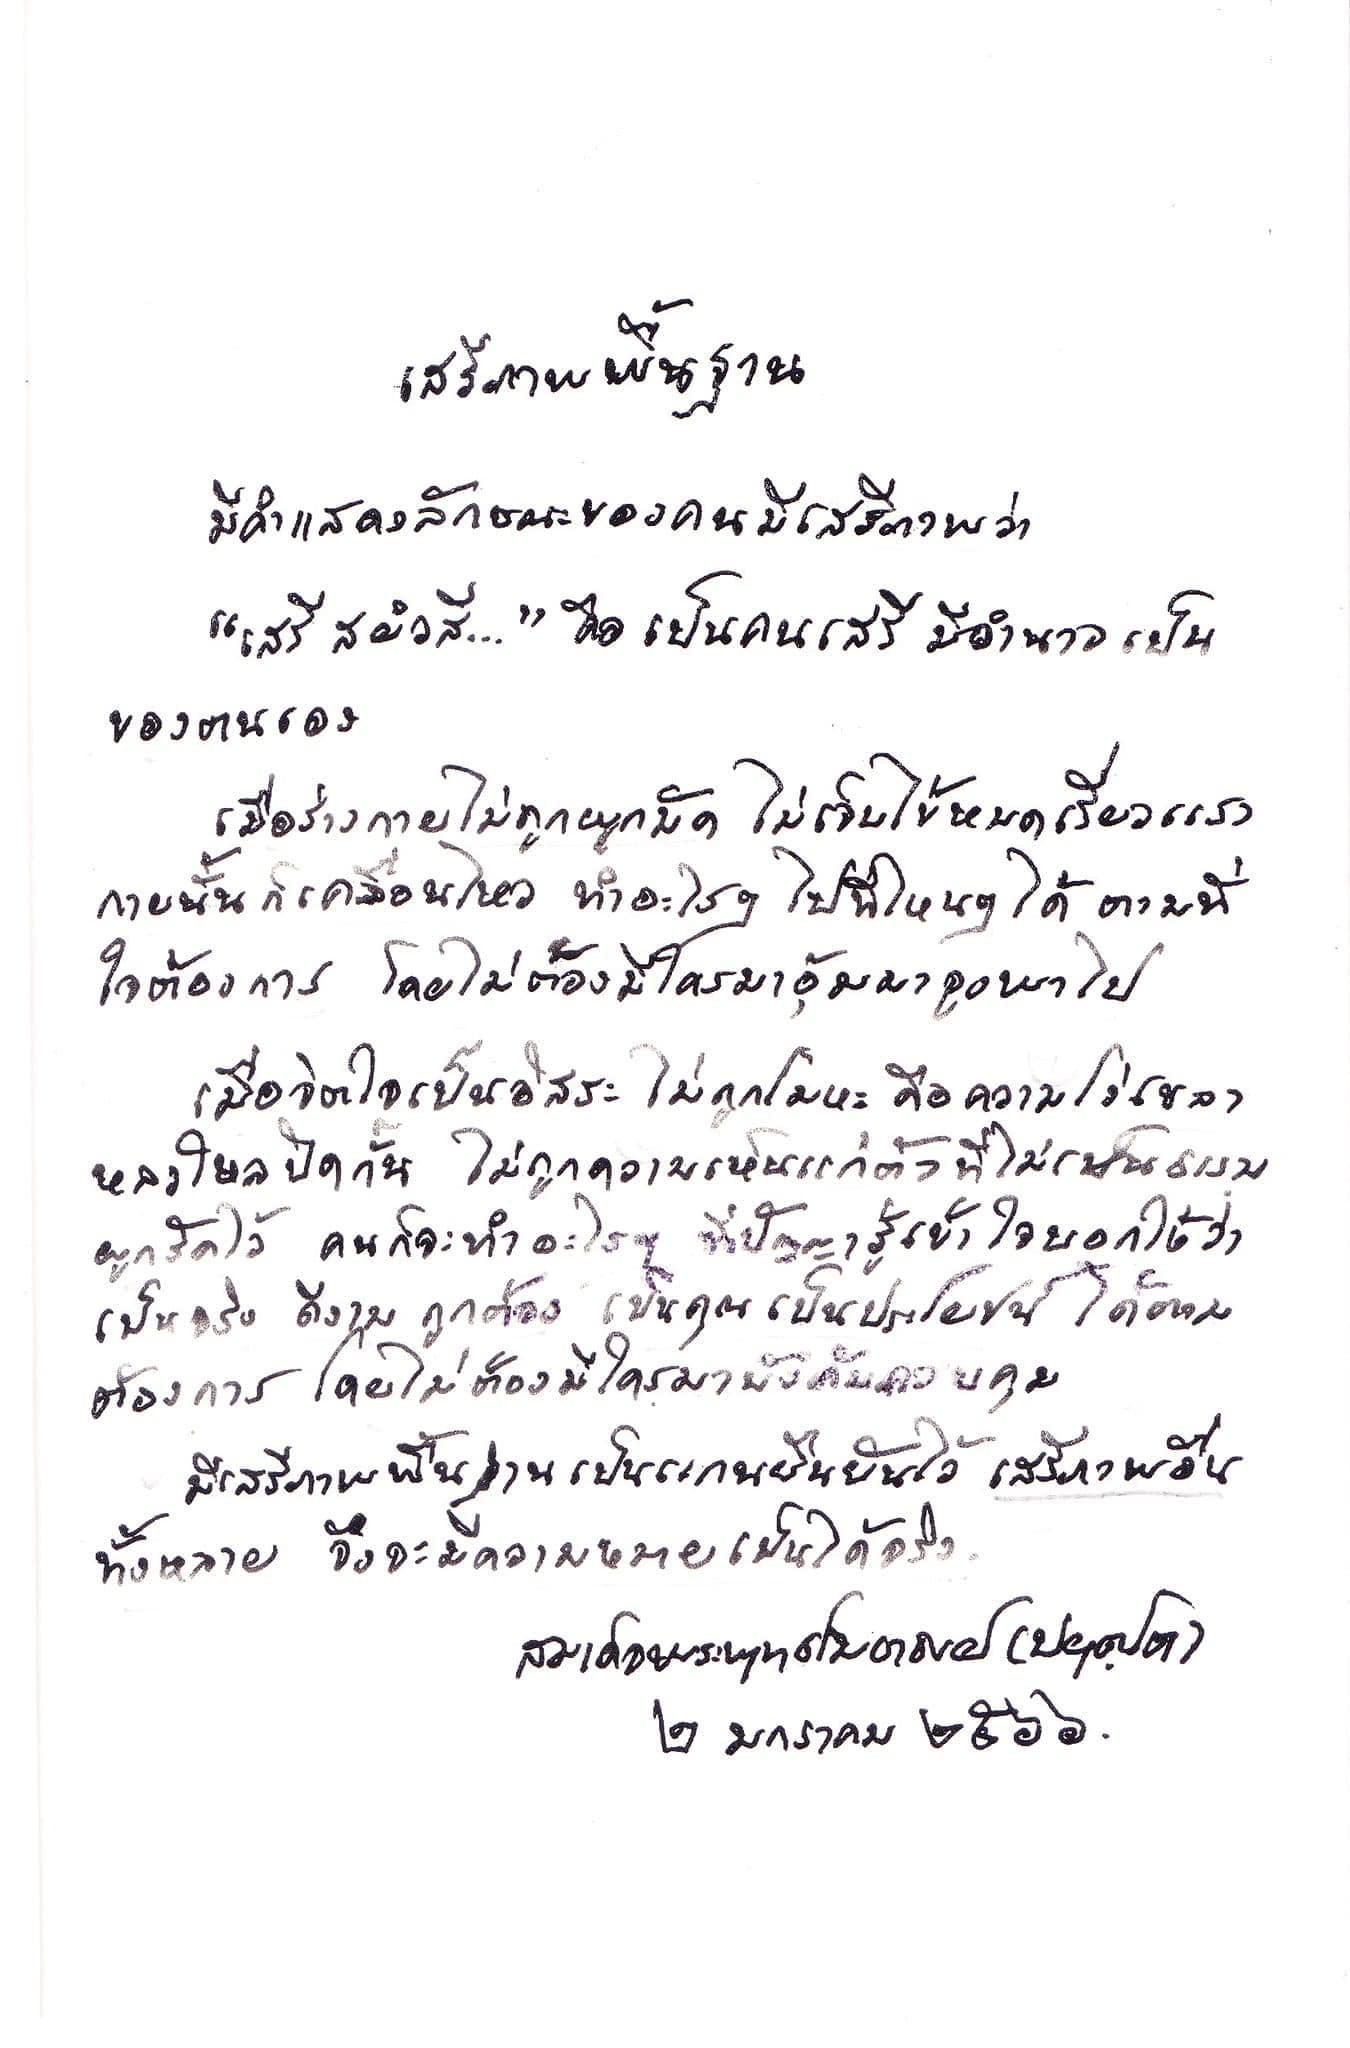 เสรีภาพพื้นฐาน
มีคำแสดงลักษณะของคนมีเสรีภาพว่า
“เสรี สยํวสี...” คือ เป็นคนเสรี มีอำนาจเป็น
ของตนเอง
เมื่อร่างกายไม่ถูกผูกมัด ไม่เจ็บไข้หมดเรี่ยวแรง
กายนั้นก็เคลื่อนไหว ทำอะไรๆ ไปที่ไหนๆ ได้ ตามที่
ใจต้องการ โดยไม่ต้องมีใครมาอุ้มมาจูงพาไป
เมื่อจิตใจเป็นอิสระ ไม่ถูกโมหะ คือความโง่เขลา
หลงใหลปิดกั้น ไม่ถูกความเห็นแก่ตัวที่ไม่เป็นธรรม
ผูกรัดไว้ คนก็จะทำอะไรๆ ที่ปัญญารู้เข้าใจบอกได้ว่า
เป็นจริง ดีงาม ถูกต้อง เป็นคุณ เป็นประโยชน์ ได้ตาม
ต้องการ โดยไม่ต้องมีใครมาบังคับควบคุม
มีเสรีภาพพื้นฐานเป็นแกนยืนยันไว้ เสรีภาพอื่น
ทั้งหลาย จึงจะมีความหมายเป็นได้จริง.
สมเด็จพระพุทธโฆษาจารย์ (ป.อ. ปยุตฺโต)
๒ มกราคม ๒๕๖๖.